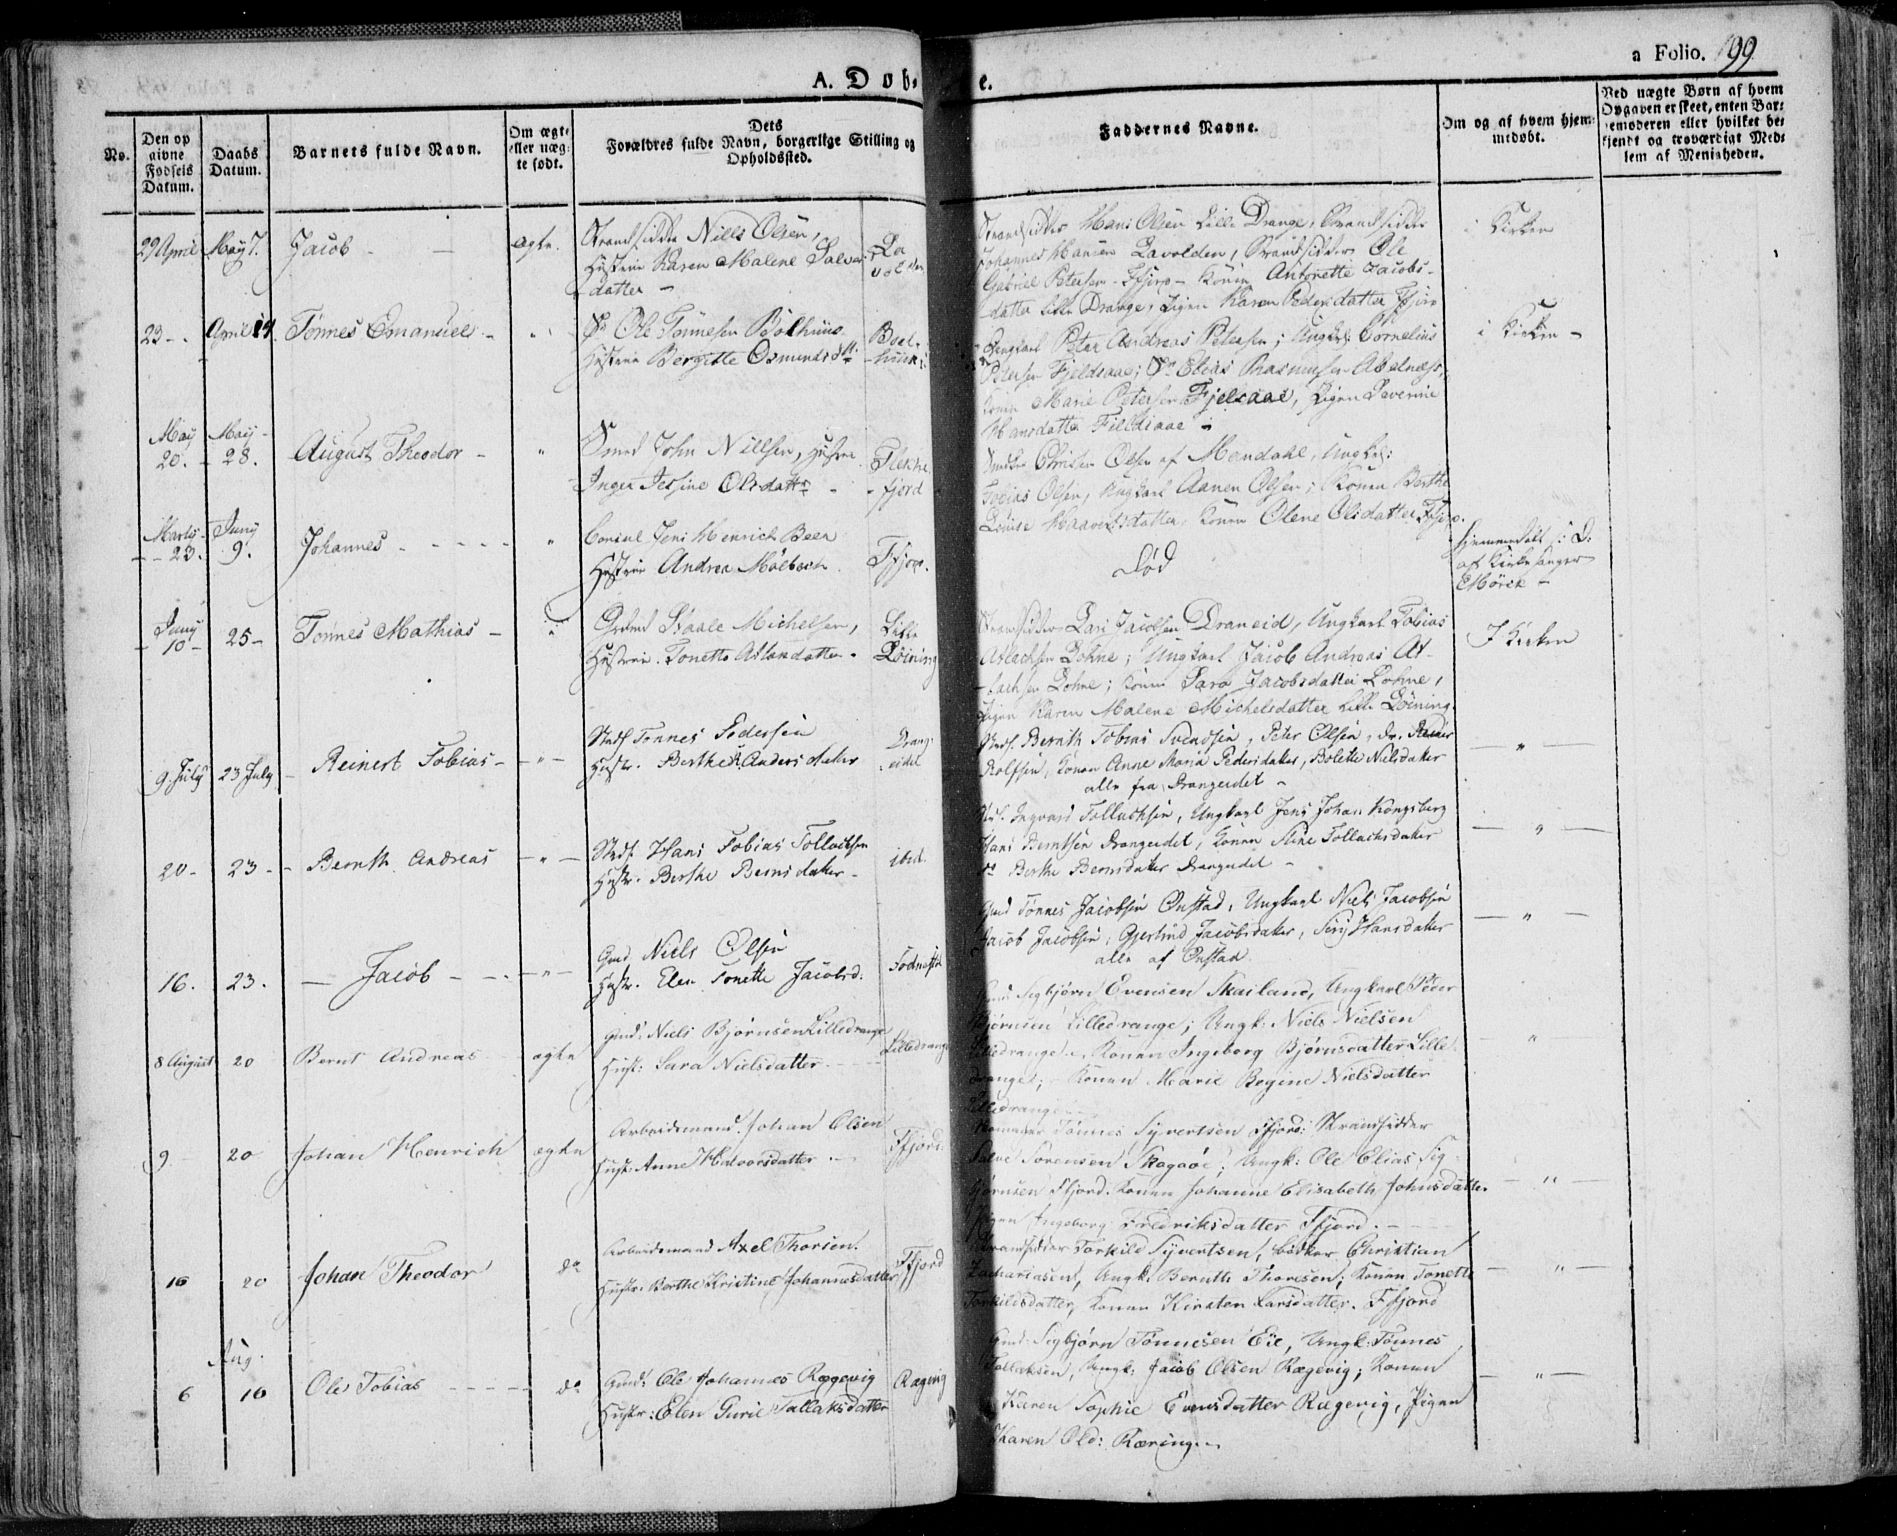 A. Døbe.
a Folio. 199
No.
Den opgivne Fødsels Datum.
Daabs Datum.
Barnets fulde Navn.
Om ægte eller uægte født.
Dets Forældres fulde Navn, borgerlige Stilling og Opholdssted.
Faddernes Navne.
Om og af hvem hjemmedøbt.
Ved uægte Børn af hvem Opgaven er skeet, enten Barnemoderen eller hvilket bekjendt og troværdigt Medlem af Menigheden.
29 April May 7. Jacob - ægte. Strandsidder Niels Olsen,
Hustrue Karen Malene Salves
datter -
Strandsidder Hans Olsen Lille Drange, Strandsidder
Johannes Hansen Lavolden, Strandsidder Ole
Gabriel Petersen Ffjord - Konen Antonette Jacobs-
datter Lille Drange, Pigen Karen Pedersdatter Ffjord
i Kirken
23 - April 24. Tønnes Emanuel - " Ole Tønnesen Bølhuus
Hustrue Bergitte Osmundsdtr. Boelhuus
Ungkarl Peter Andreas Petersen; Ungkarl Cornelius
Petersen Fjeldsaae; Elias Rasmussen Abelnæs,
Konen Marie Petersen Fjelsaae, Pigen Severine
Hansdatter Fieldsaae -
i Kirken -
May 20. May 28. August Theodor - " Smed John Nillsen, Hustrue
Inger Jesine Olsdattr - Flekkefjord
Christen Olsen af Mandahl, Ungkarl:
Tobias Olsen, Ungkarl Aanen Olsen; Konen Berthe
Louise Haavorsdatter, Konen Olene Olsdatter Ffjord.
Marts 23. Juny 9. Johannes - - - - " Jens Henrich Beer
Hustrue Andrea Mölbach Ffjord.
Død
hjemmedøbt
af Kirkesanger
Mørch -
Juny 10 - 25 - Tønnes Mathias - " Staale Michelsen,
Hustrue Tonette Atlaksdatter - Lille Løining
Strandsidder Lars Jacobsen Draneid, Ungkarl Tobias
Atlachsen Lohne; Ungkarl Jacob Andreas At-
lachsen Lohne; Konen Sara Jacobsdatter Lohne,
Pigen Karen Malene Michelsdatter Lille Løining.
I Kirken
9 July 23 July - Reinert Tobias - - " - Strds. Tønnes Pedersen
Hustr. Berthe Andersdatter Drangeidet
Strds. Bernth Tobias Svendsen, Peter Olsen, Do. Reiner
Rolfsen, Konen Anne Maria Pedersdatter, Bolette Nielsdatter
alle fra Drangeidet -
- " -
20 - 23 - - Bernth Andreas - " - Strds. Hans Tobias Tollachsen
Hustr. Berthe Berntsdatter - ibid.
Strds. Ingvard Tollachsen, Ungkarl Jens Johan Kongsberg
Hans Berntsen Drangeidet, Konen Stine Tollachsdatter
Do Berthe Berntsdatter Drangeidet -
- " -
16. 23. - Jacob - - " - Gmd Niels Olsen
Hustr. Elen Tonette Jacobsd.
Gmd Tønnes Jacobsen Onstad, Ungkarl Niels Jacobsen
Jacob Jacobsen, Gjertrud Jacobsdatter, Siri Hansdatter
alle af Onstad.
- " -
8 August 20 Bernt Andreas ægte Gmd: Niels Bjørnsen Lilledrange
Hust: Sara Nielsdatter Lilledrange
Gmd. Sigbjørn Evensen Skailand, Ungkarl Peder
Bjørnsen Lilledrange; Ungk: Niels Nielsen
Lilledrange, Konen Ingeborg Bjørnsdatter Lille
drange; Konen Marie Regine Nielsdatter
Lilledrange
- " -
9 20 Johan Henrich ægte Arbeidsmand Johan Olsen
Hust: Anne Halvorsdatter - Ffjord
Tønnes Syvertsen Ffjord: Strandsidder
Salve Sørensen Skagaoe; Ungk: Ole Elias Sig-
bjørnsen Ffjord. Konen Johanne Elisabeth Johnsdatter
Pigen Ingeborg Fredriksdatter Ffjord. -
- " -
16 20 Johan Theodor do Arbeidsmand Axel Thorsen.
Hustr: Berthe Kristine Johannesdatter Ffjord
Strandsidder Torkild Syvertsen, Bødker Christian
Zachariasen, Ungk: Bernth Thorsen; Konen Tonette
Torkildsdatter, Konen Kirsten Larsdatter. Ffjord
- " -
6 Aug. 10 Ole Tobias - - - do Gmd: Ole Johannes Rægevig
Hustr: Elen Gurie Tollaksdatter Rægevig
Gmd: Sigbjørn Tønnesen Eie, Ungk: Tønnes
Tollaksen, Ungk: Jacob Olsen Rægevig; Konen
Karen Sophie Evensdatter Rægevig, Pigen
Karen Olsd: Ræving
- " -